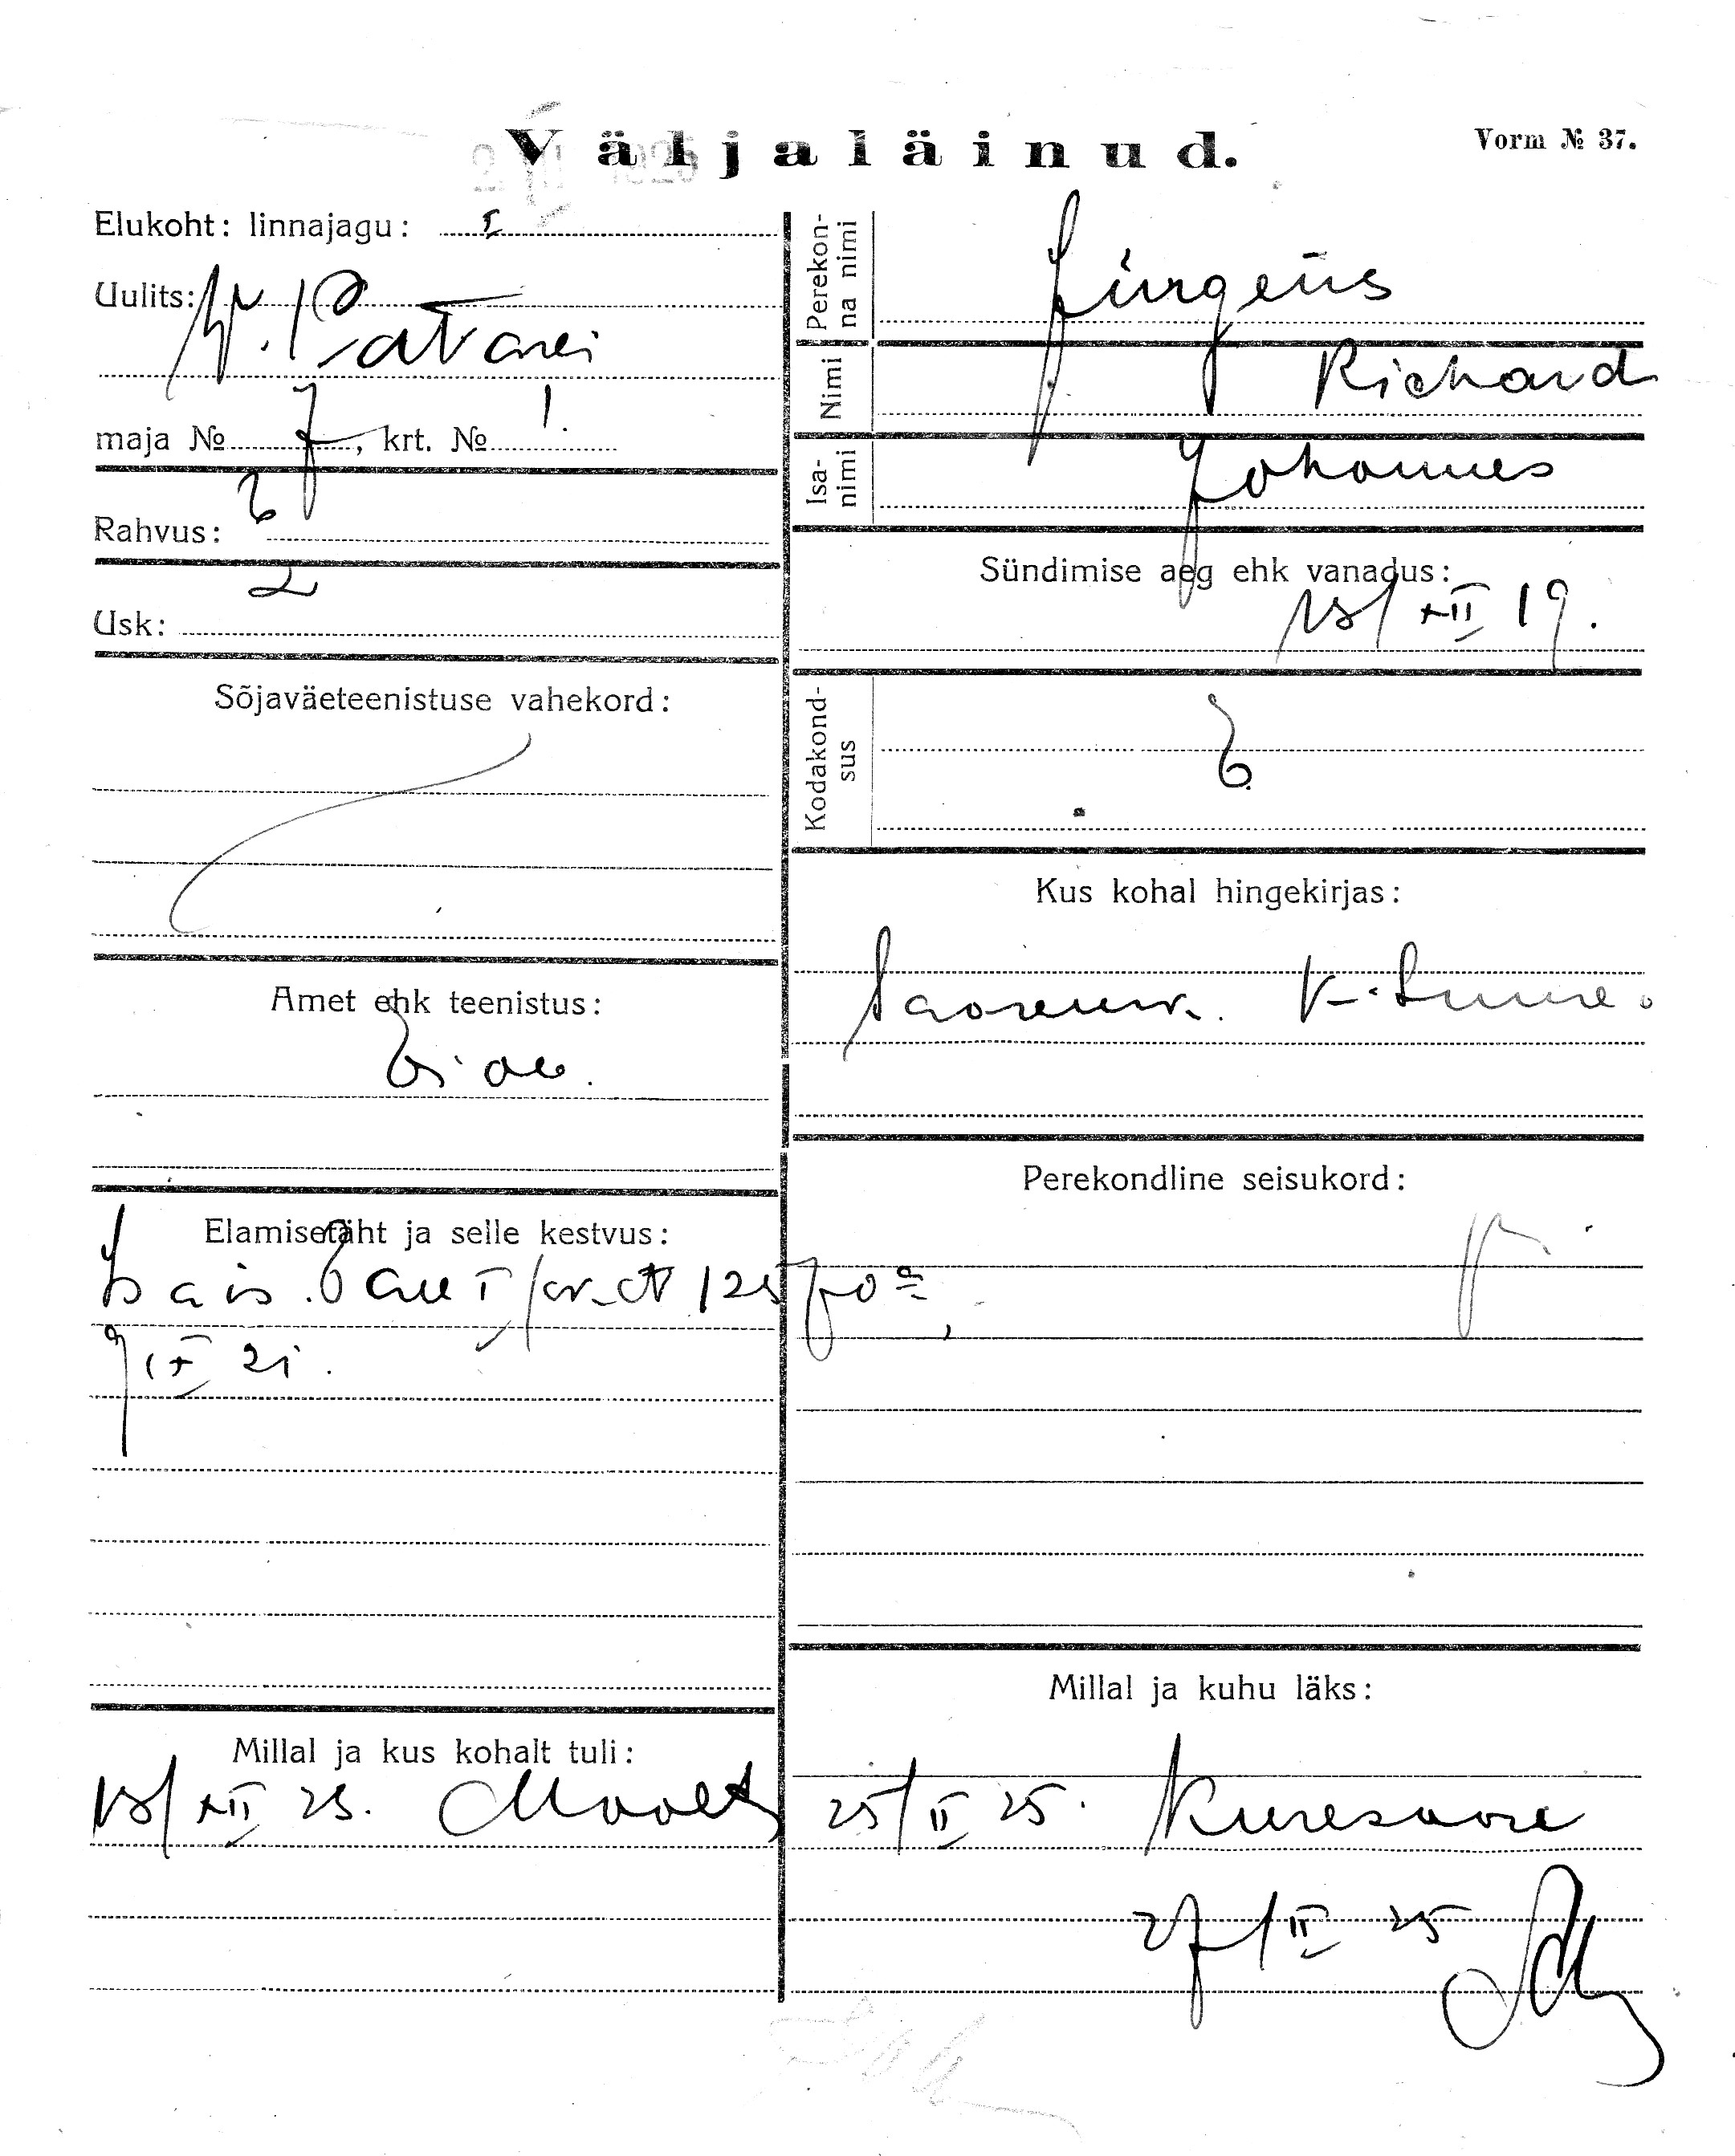 Väljaläinud.
Vorm № 37.
Elukoht: linnajagu: I
Uulits: W. Patarei
maja № 7, krt. № 1.
Rahvus: E
Usk: L
Sõjaväeteenistuse vahekord:
Amet ehk teenistus:
Elamisetäht ja selle kestvus:
9 IX 21.
Millal ja kus kohalt tuli:
18/XII 23.
Perekonna nimi Jürgens
Nimi Richard
Isanimi Johannes
Sündimise aeg ehk vanadus:
18/XII 19.
Kodakondsus E.
Kus kohal hingekirjas:
Saarem. K-Suure
Perekondline seisukord:
Millal ja kuhu läks:
25/II 25. Kuresaare
27/II 25